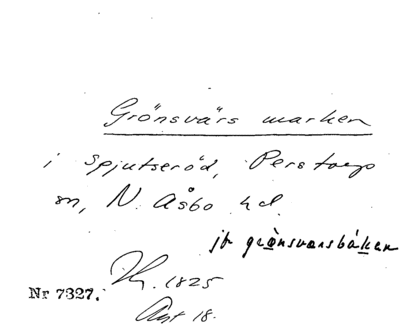 Grönsvärs marken
i Spjutseröd, Perstorps
sn, N. Åsbo hd.
jfr grònsvarsbákken
Nr 7327. Hg. 1825
Akt 18.